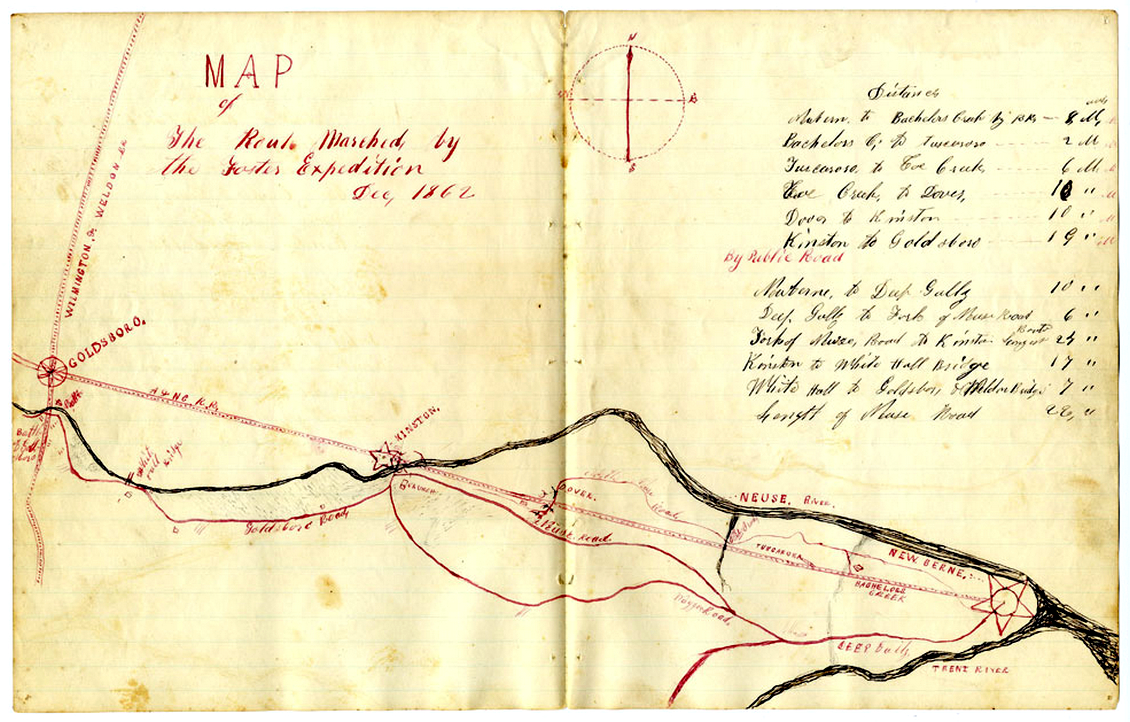 MAP
of
The Route Marched, by
the Foster Expedition
Dec, 1862
N
S
Distances
Newbern, to Bachelors Creek by RR — 8 M,
Bachelors C, to Tuscarora 2 M
Tuscarora, to Cove Creek, 6 M
Cove Creek, to Dover, 10 "
Dover to Kinston 10 "
Kinston to Goldsboro 19 "
By Public Road
Newberne, to Deep Gully 10 "
Deep, Gully to Fork of Neuse Road 6 "
Fork of Neuse, Road to Kinston 24 "
Kinston to White Hall Bridge 17 "
White Hall to Goldsboro, & Weldon Bridge 7 "
Length of Neuse Road "
WILMINGTON, & WELDON RR
GOLDSBORO.
A & NC R.R.
KINSTON.
Goldsboro Road,
DOVER.
Neuse. Road.
NEUSE, RIVER.
TUSCARORA
NEW BERNE,
BACHELORS
CREEK
DEEP Gully
TRENT RIVER